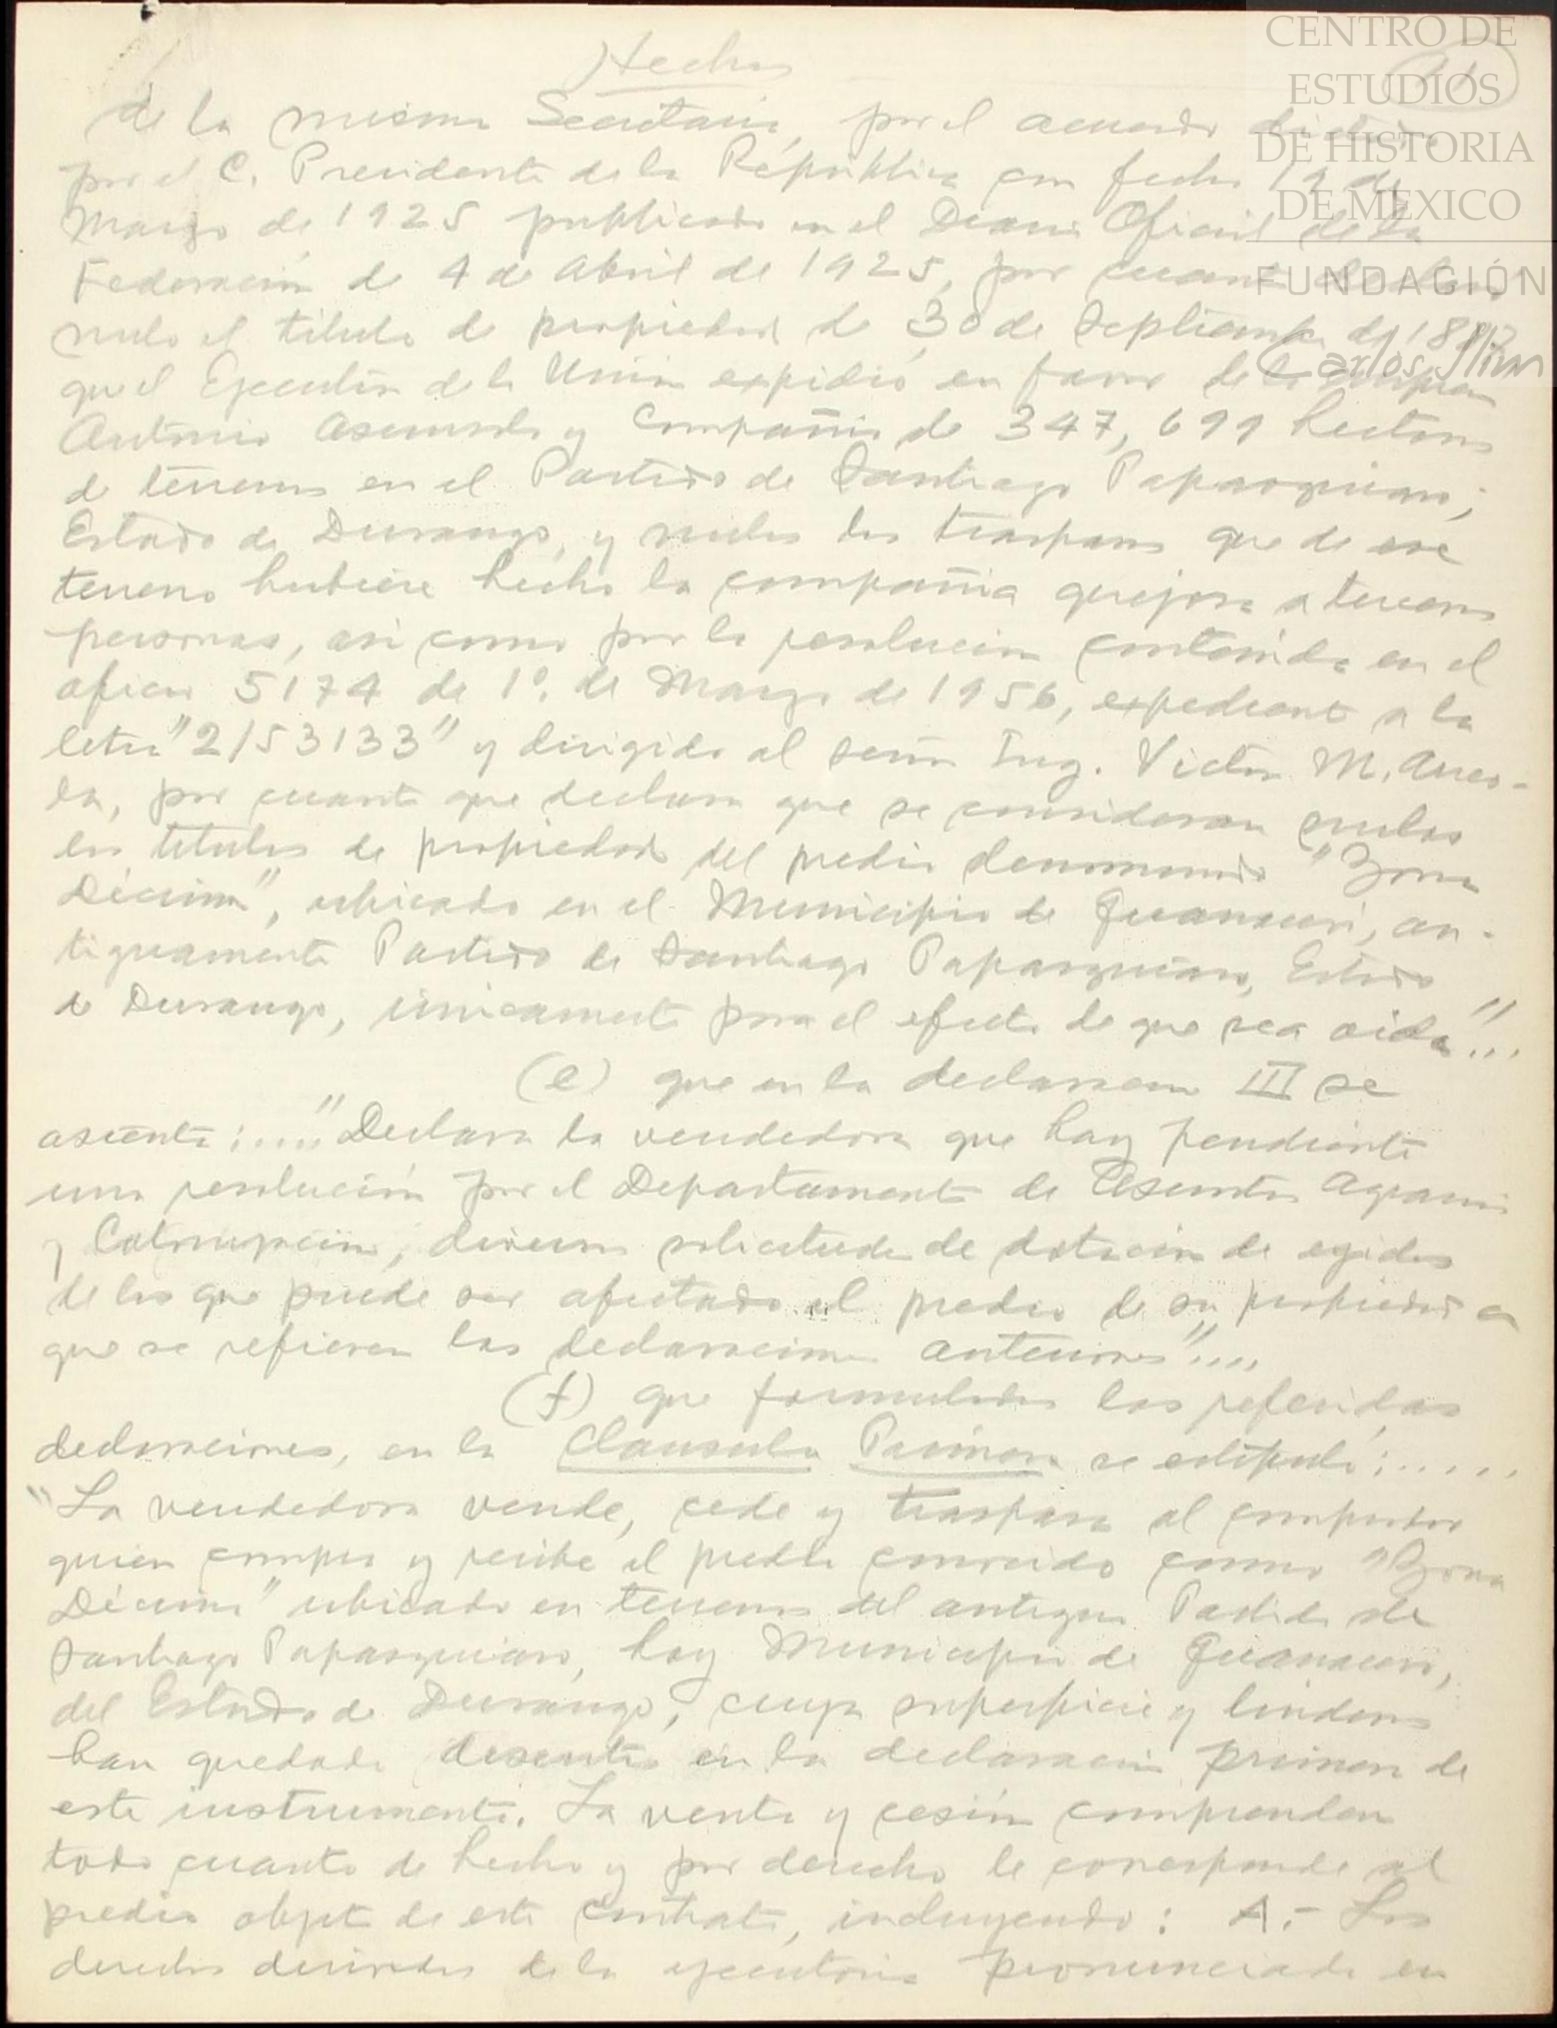 CENTRO DE
ESTUDIOS
DE HISTORIA
DE MEXICO
FUNDACIÓN
Carlos Slim
Hechos
de la misma Secretaria, por el acuerdo
por el C. Presidente de la República con fecha 19 de
Marzo de 1925 publicado en el Diario Oficial de la
Federación de 4 de Abril de 1925, por cuanto
nulo el título de propiedad de 30 de Septiembre de
que el Ejecutivo de la Unión expidió en favor de la
Antonio Asunsolo y Compañia de 347,699 hectáreas
de terrenos en el Partido de Santiago Papasquiaro,
Estado de Durango, y nulos los traspasos que de ese
terreno hubiere hecho la compañia quejosa a terceras
personas, asi como por la resolucion contenida en el
oficio 5174 de 1º. de Marzo de 1956, expediente a la
letra "2/53133" y dirigido al señor Ing. Victor M. Arreo-
la, por cuanto que declara que se consideran nulos
los titulos de propiedad del predio denominado "Zona
Décima", ubicado en el Municipio de Guanacevi, an-
tiguamente Partido de Santiago Papasquiaro, Estado
de Durango, unicamente para el efecto de que sea oida"...
(e) que en la declaracion III se
asienta:...."Declara la vendedora que hay pendiente
una resolución por el Departamento de Asuntos Agrarios
y Colonización, diversas solicitudes de dotación de egidos
de los que puede ser afectado el predio de su propiedad a
que se refieren las declaraciones anteriores"....
(f) que formuladas las referidas
declaraciones, en la Clausula Primera se estipuló:.....
"La vendedora vende, cede y traspasa al comprador
quien compra y recibe el predio conocido como "Zona
Décima" ubicado en terrenos del antiguo Partido de
Santiago Papasquiaro, hoy Municipio de Guanacevi,
del Estado de Durango, cuya superficie y linderos
han quedado descritos en la declaracion primera de
este instrumento. La venta y cesión comprenden
todo cuanto de hecho y por derecho le corresponde al
predio objeto de este contrato, incluyendo: A.- Los
derechos derivados de la ejecutoria pronunciada en